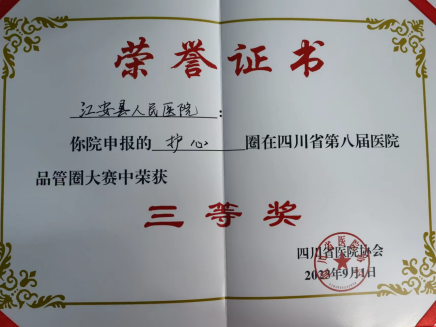 荣誉证书
江安县人民医院：
你院申报的护心圈在四川省第八届医院
品管圈大赛中荣获
三等奖
四川省医院协会
2023年9月1日